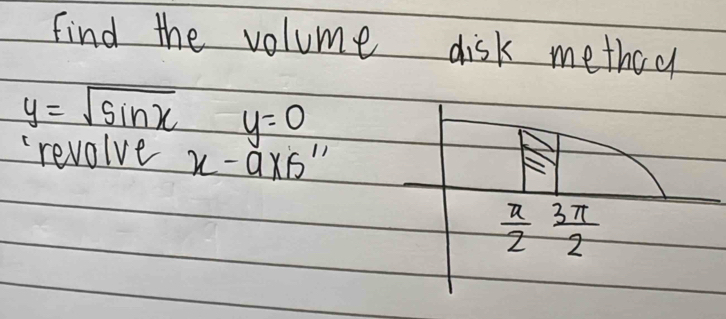 Find the volume disk method
y = √sinx y = 0
"revolve x - axis"
π/2 3π/2